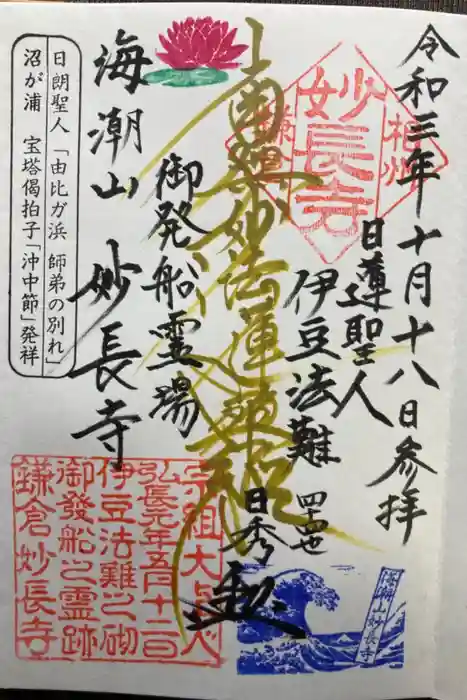 令和三年十月十八日参拝
相州
妙長寺
鎌倉
日蓮聖人
伊豆法難
四十四世
日秀
南無妙法蓮華経
御発船霊場
海潮山 妙長寺
日朗聖人「由比ガ浜 師弟の別れ」
沼が浦 宝塔偈拍子「沖中節」発祥
宗祖大上人
弘長元年五月十二日
伊豆法難之砌
御發船之霊跡
鎌倉妙長寺
海潮山妙長寺